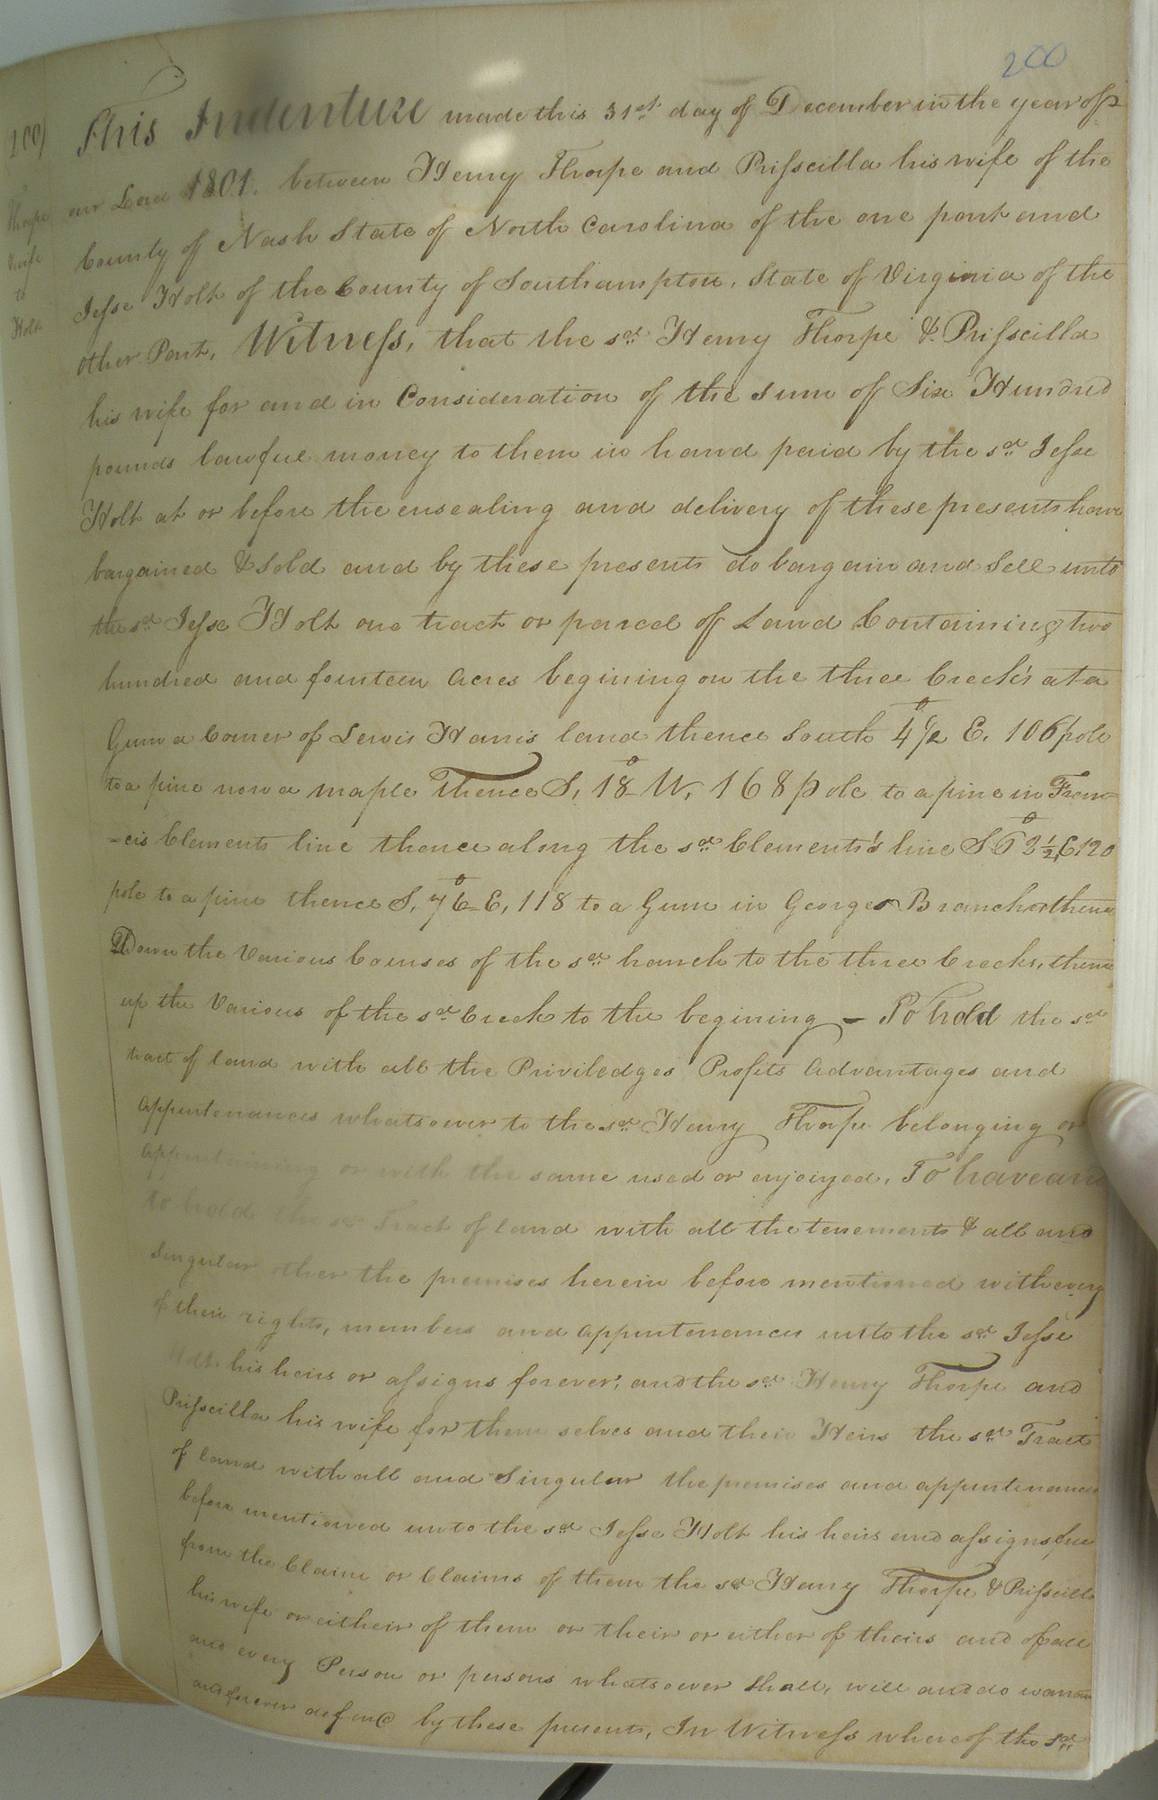 200
This Indenture made this 31st day of December in the year of
our Lord 1801. between Henry Thorpe and Prisscilla his wife of the
County of Nash State of North Carolina of the one part and
Jesse Holt of the County of Southampton, State of Virginia of the
other Part, Witness, that the sd Henry Thorpe & Prisscilla
his wife for and in Consideration of the sum of Six Hundred
pounds lawful money to them in hand paid by the sd Jesse
Holt at or before the ensealing and delivery of these presents have
bargained & sold and by these presents do bargain and sell unto
the sd Jesse Holt one tract or parcel of Land Containing two
hundred and fourteen acres begining on the three Creek's at a
Gum a Corner of Lewis Harris land thence South E. 106 pole
to a pine now a maple Thence S, 18° W, 168 pole to a pine in Fran-
-cis Clements line thence along the sd Clements's line S 63½° E. 120
pole to a pine thence S, 76° E, 118 to a Gum in Georges Branch thence
Down the Various Courses of the sd branch to the three Creeks, thence
up the Various of the sd Creek to the begining - To hold the sd
tract of land with all the Priviledges Profits advantages and
appurtenances whatsoever to the sd Henry Thorpe belonging or
appertaining or with the same used or enjoyed, To have and
to hold the sd Tract of land with all the tenements & all and
singular other the premises herein before mentioned with every
of their rights, members and appurtenances unto the sd Jesse
Holt his heirs or assigns forever, and the sd Henry Thorpe and
Prisscilla his wife for them selves and their Heirs the sd Tract
of land with all and Singular the premises and appurtenances
before mentioned unto the sd Jesse Holt his heirs and assigns free
from the Claim or Claims of them the sd Henry Thorpe & Prisscilla
his wife or either of them or their or either of theirs and of all
and every Person or persons whatsoever shall, will and do warrant
and forever defend by these presents, In Witness whereof the sd
Thorpe
wife
to
Holt